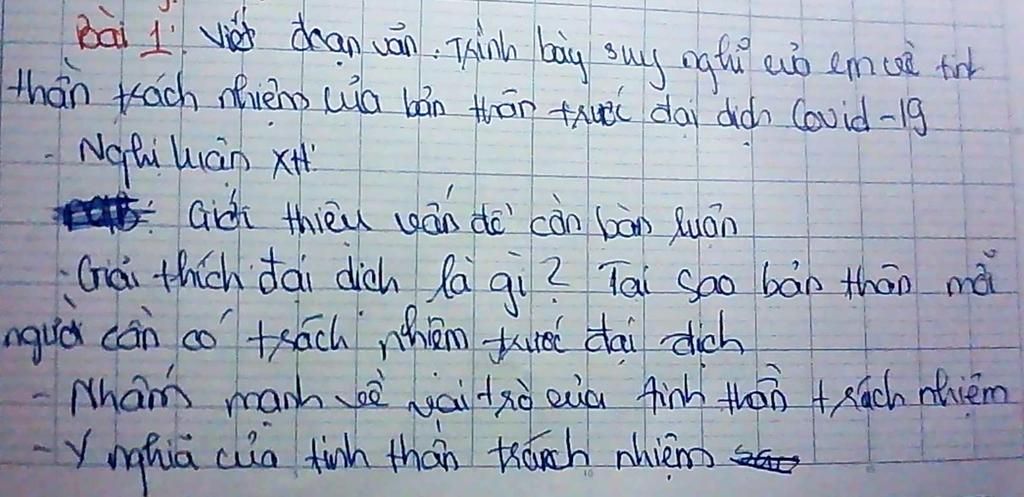 Bài 1: Viết đoạn văn. Trình bày suy nghĩ của em về tinh
thần trách nhiệm của bản thân trước đại dịch Covid-19
- Nghị luận XH:
Giới thiệu vấn đề cần bàn luận
- Giải thích đại dịch là gì? Tại sao bản thân mỗi
người cần có trách nhiệm trước đại dịch
- Nhấn mạnh về vai trò của tinh thần trách nhiệm
- Ý nghĩa của tinh thần trách nhiệm